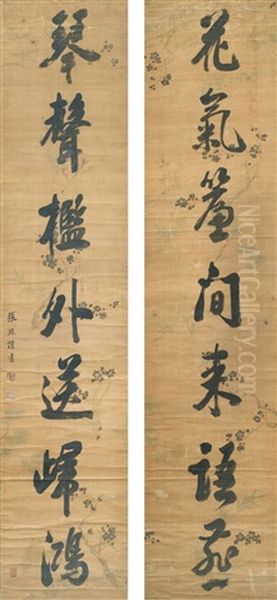 花氣簾間來語燕
琴聲檻外送歸鴻
張照謹書